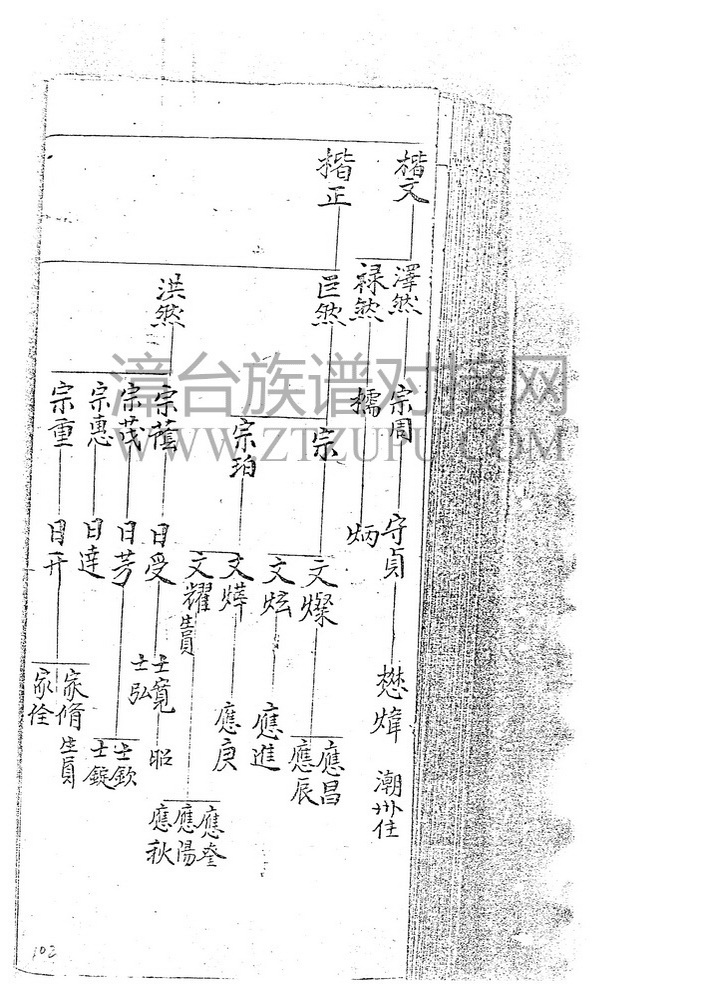 楷文
楷正
澤然
祿然
叵然
洪然
漳台族谱对接网
WWW.ZTZUPU.COM
宗周
擩
宗
宗珀
宗蔭
宗茂
宗愚
宗重
守貞
炳
文燦
文炫
文燁
文耀 生員
日受
日芳
日達
日开
懋煒 潮州住
應昌
應辰
應進
應庚
應奎
應陽
應秋
士寬
士弘
昭
士欽
士錠
家脩 生員
家佺
102